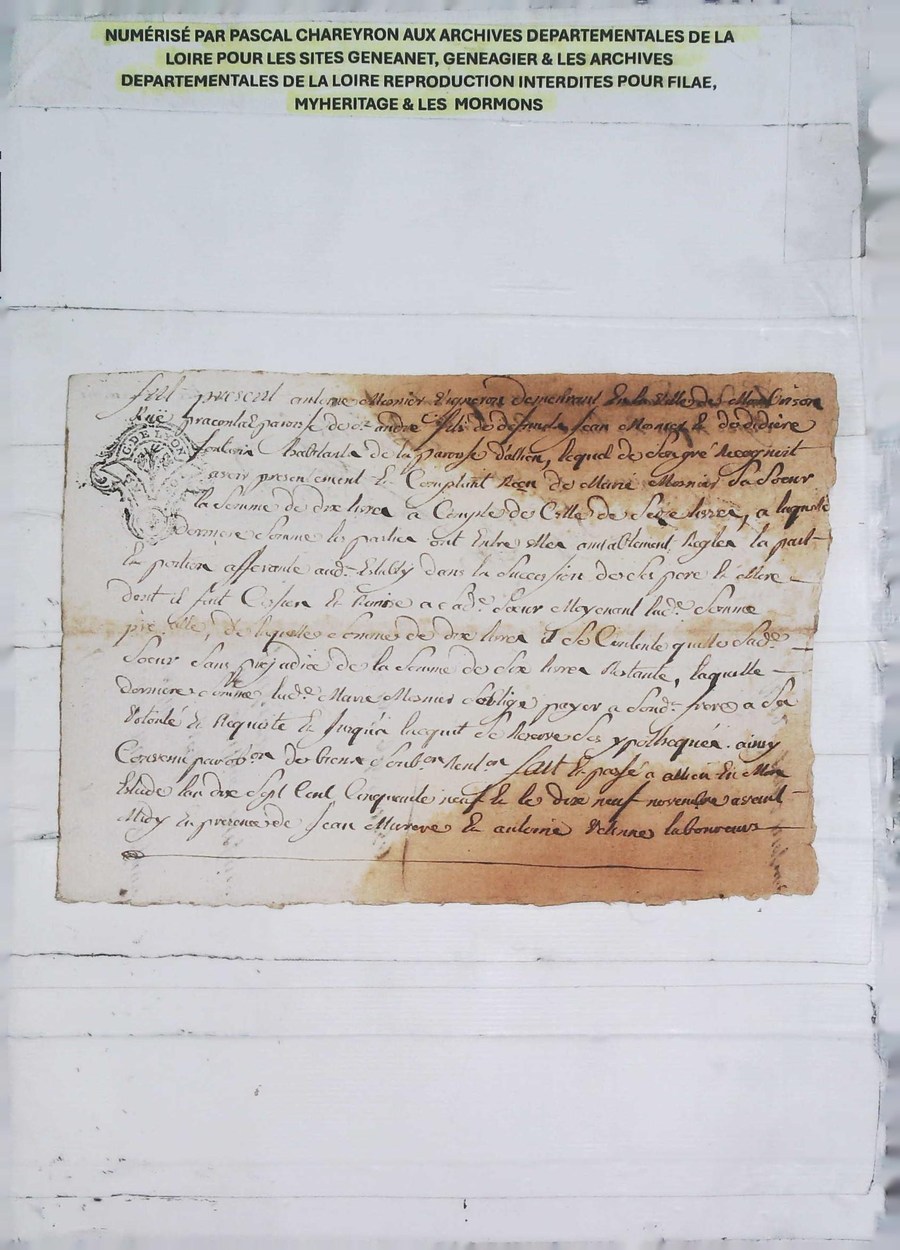 NUMÉRISÉ PAR PASCAL CHAREYRON AUX ARCHIVES DEPARTEMENTALES DE LA
LOIRE POUR LES SITES GENEANET, GENEAGIER & LES ARCHIVES
DEPARTEMENTALES DE LA LOIRE REPRODUCTION INTERDITES POUR FILAE,
MYHERITAGE & LES MORMONS
fut present antoine Monier Vigneron demeurant En la Ville de Montbrison
Ruë paroisse de st andré fils de defunts jean Monier et de didière
habitants de la paroisse dallieu, lequel de Son gré Recognoit
G. DE LYON
avoir presentement Et Comptant Reçu de Marie Monier Sa Soeur
la Somme de dix livres a Compte de Celle de Seize livres, a laquelle
derniere Somme les parties ont Entre elles amiablement Reglée la part
Et portion afferante aud. dans la Succession de Ses pere Et Mere
dont il fait Cession Et Remise a sade. Soeur Moyenant lade. Somme
de laquelle Somme de dix livres il Se Contente quitte Sade.
Soeur Sans prejudice de la Somme de Six livres Restante, laquelle
derniere Somme lade. Marie Monier Soblige payer a Sond. frere a Sa
Volonté Et Requiste Et jusqu'a lacquit Se Reserve Ses ypotheques. ainsy
Convenu par obon. de biens Soubon. Renon. fait Et passé a allieu En Mon
Etude lan dix Sept Cent Cinquante neuf Et le dix neuf novembre avant
Midy En presence de jean Et antoine laboureurs